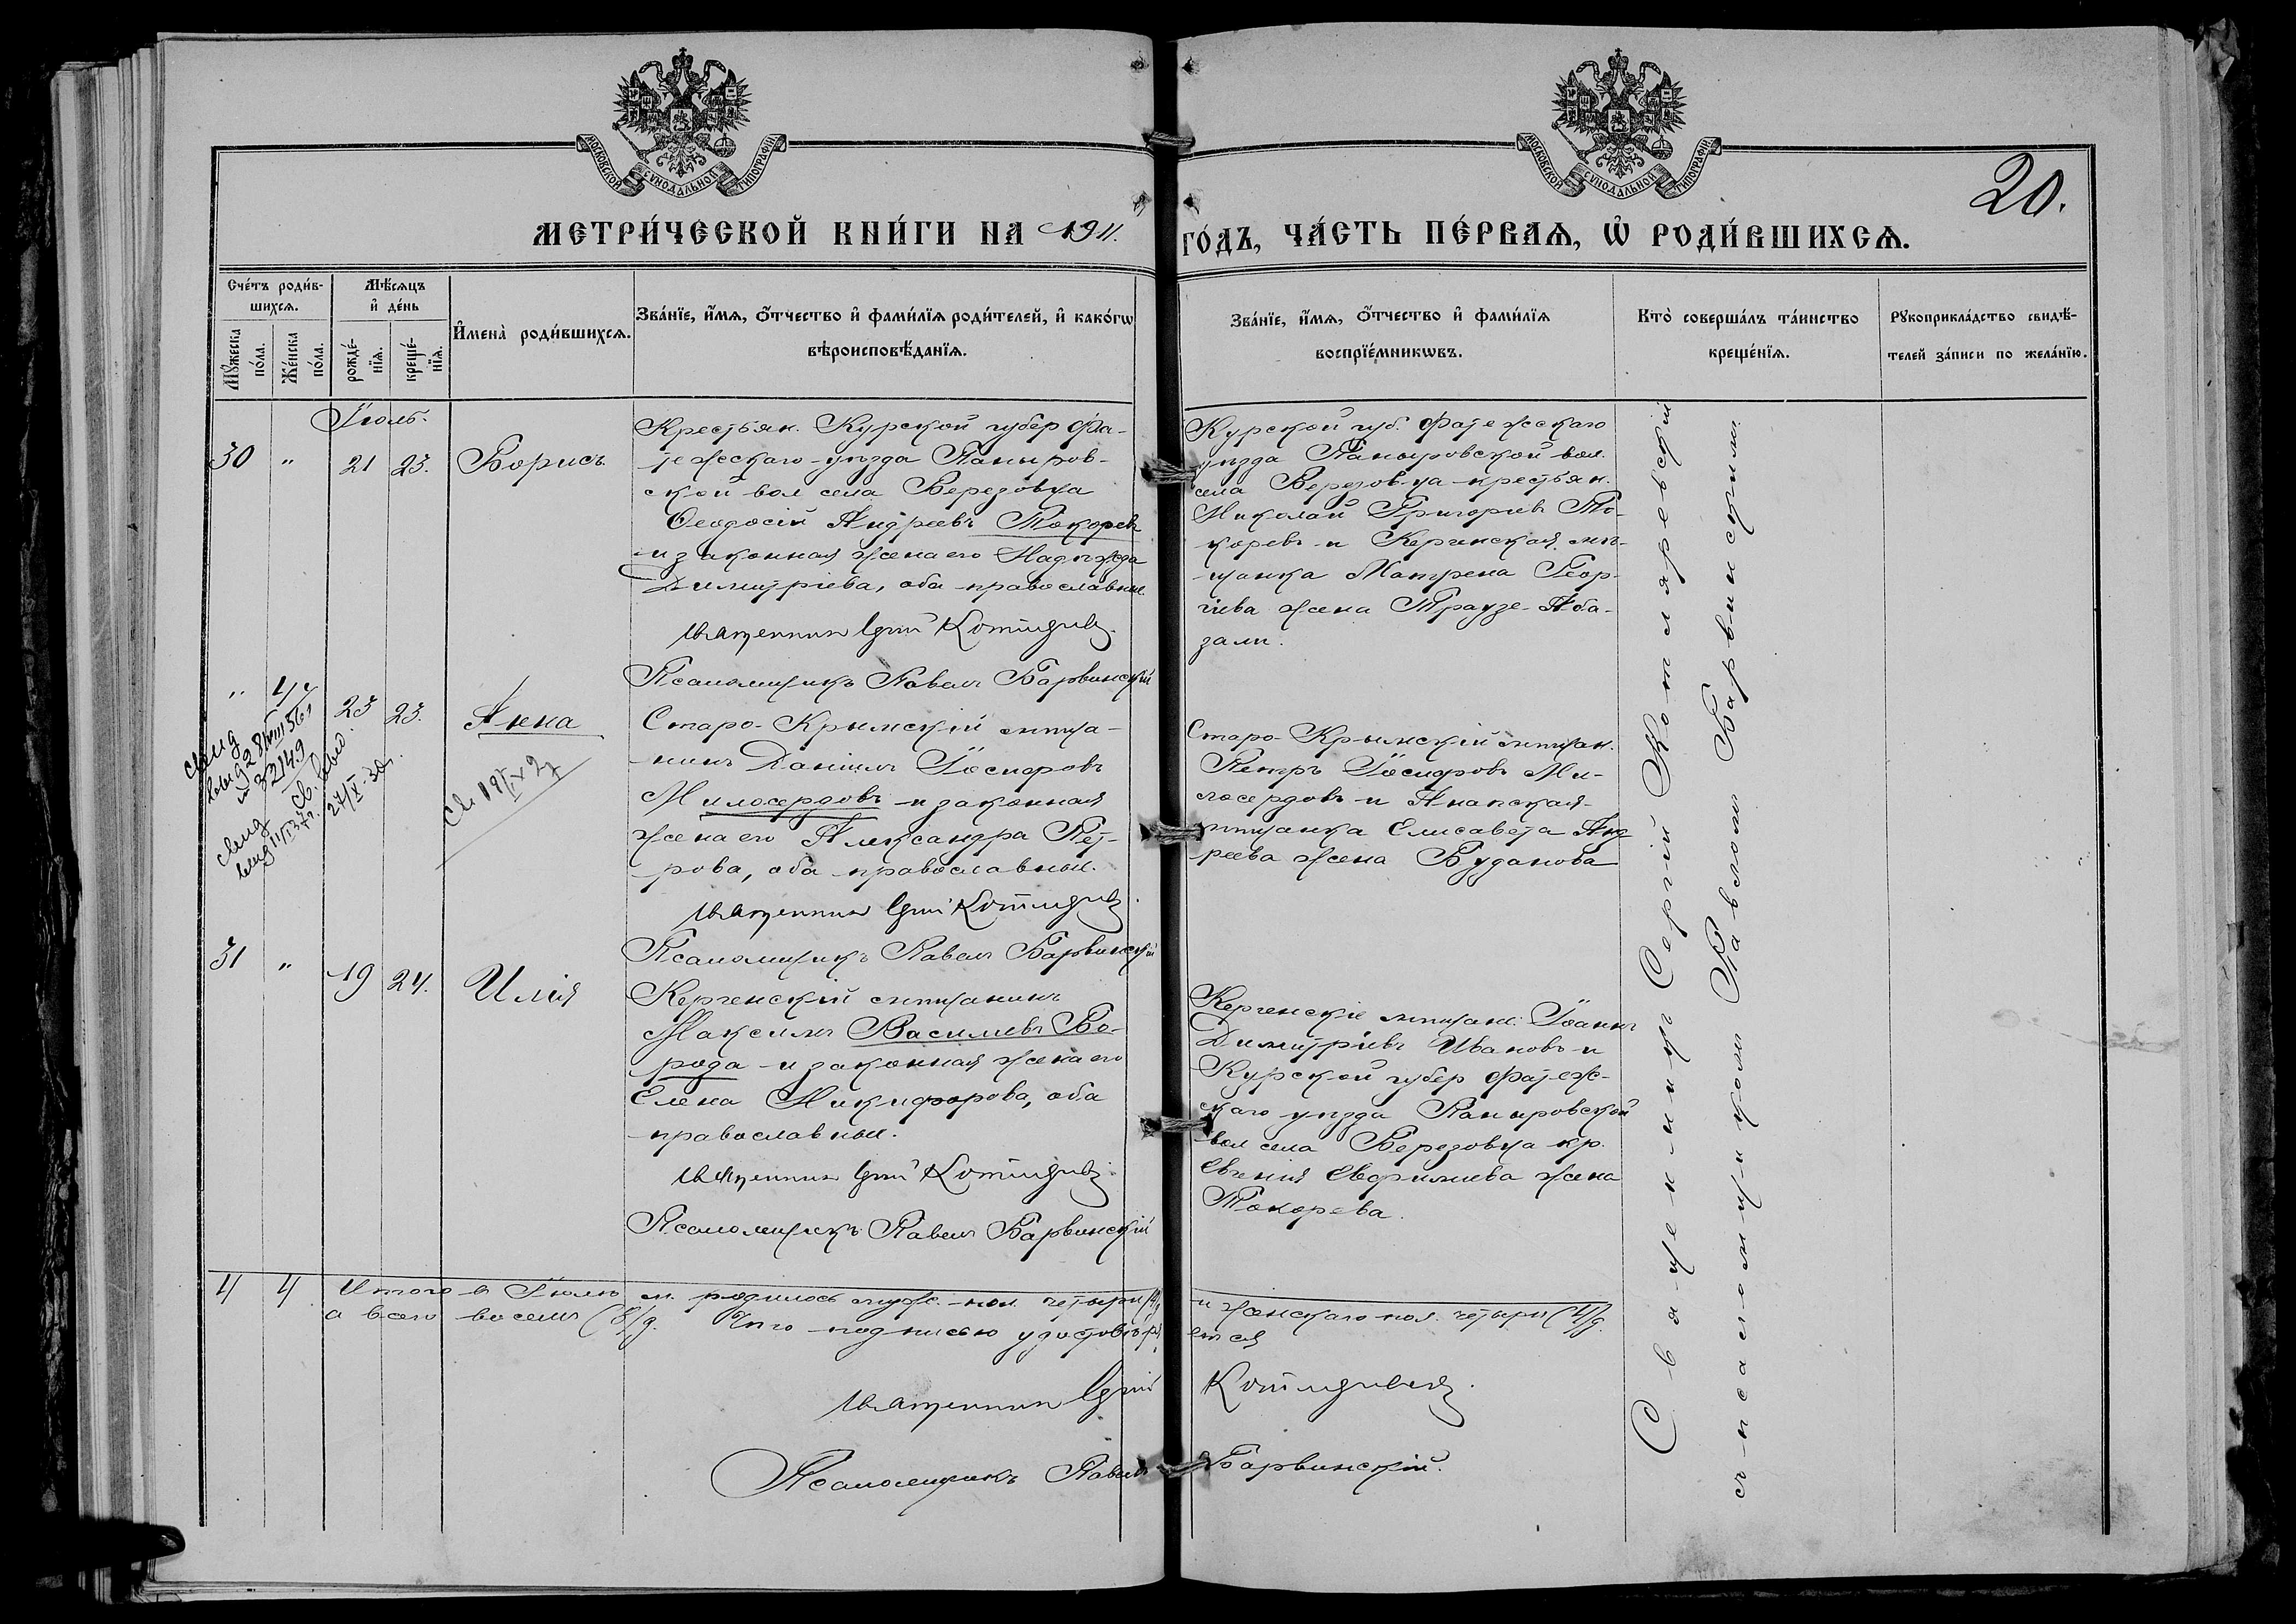 МОСКОВСКОЙ СѴНОДАЛЬНОЙ ТИПОГРАФІИ
МОСКОВСКОЙ СѴНОДАЛЬНОЙ ТИПОГРАФІИ
20.
МЕТРИ́ЧЕСКОЙ КНИ́ГИ НА 1911. ГО́ДЪ, ЧА́СТЬ ПЕ́РВАѦ, Ѡ҆ РОДИ́ВШИХСѦ.
Сче́тъ роди́в-
шихсѧ.
Мꙋ́жеска
по́ла.
Же́нска
по́ла.
Мѣ́сѧцъ
и҆ де́нь
рожде́-
нїѧ.
креще́-
нїѧ.
И҆мена̀ роди́вшихсѧ.
Зва́нїе, и҆́мѧ, ѻ҆́тчество и҆ фами́лїѧ роди́телей, и҆ како́гѡ
вѣроисповѣ́данїѧ.
Зва́нїе, и҆́мѧ, ѻ҆́тчество и҆ фами́лїѧ
воспрїе́мникѡвъ.
Кто̀ соверша́лъ та́инство
креще́нїѧ.
Рꙋкоприкла́дство свидѣ́-
телей за́писи по жела́нїю.
Іюль.
30 " 21 23. Борисъ
Крестьян. Курской губер Фа-
тежскаго уѣзда Паныров-
ской вол села Березовца
Ѳеодосій Андреевъ Токоревъ
и законная жена его Надежда
Димитріева, оба православные.
Священникъ Сергій Котляревскій.
Псаломщикъ Павелъ Барвинскій
Курской губ. Фатежскаго
уѣзда Паныровской вол.
села Березовца крестьян.
Николай Григорьев То-
коревъ и Керченская мѣ-
щанка Матрена Геор-
гіева жена Траузе-Аба-
зали.
" 4 23 23. Анна
Старо-Крымскій мѣща-
нинъ Даніилъ Іосифовъ
Милосердовъ и законная
жена его Александра Пет-
рова, оба православные.
Священникъ Сергій Котляревскій.
Псаломщикъ Павелъ Барвинскій
Старо-Крымскій мѣщан.
Петръ Іосифовъ Ми-
лосердовъ и Анапская
мѣщанка Елисавета Анд-
реева жена Буданова
31 " 19 24. Илія
Керченскій мѣщанинъ
Максимъ Васильевъ Бо-
рода и законная жена его
Елена Никифорова, оба
православные.
Священникъ Сергій Котляревскій.
Псаломщикъ Павелъ Барвинскій
Керченскіе мѣщане: Іоаннъ
Димитріевъ Ивановъ и
Курской губер Фатеж-
скаго уѣзда Паныровской
вол села Березовца кр.
Евгенія Евфиміева жена
Токорева.
Священникъ Сергій Котляревскій
съ псаломщикомъ Павломъ Барвинскимъ.
4 4 Итого въ Іюлѣ м. родилось муж. пол. четыре (4) и женскаго пол. четыре (4)д.
а всего восемь (8)д. Что подписью удостовѣряется
Священникъ Сергій Котляревскій.
Псаломщикъ Павелъ Барвинскій.